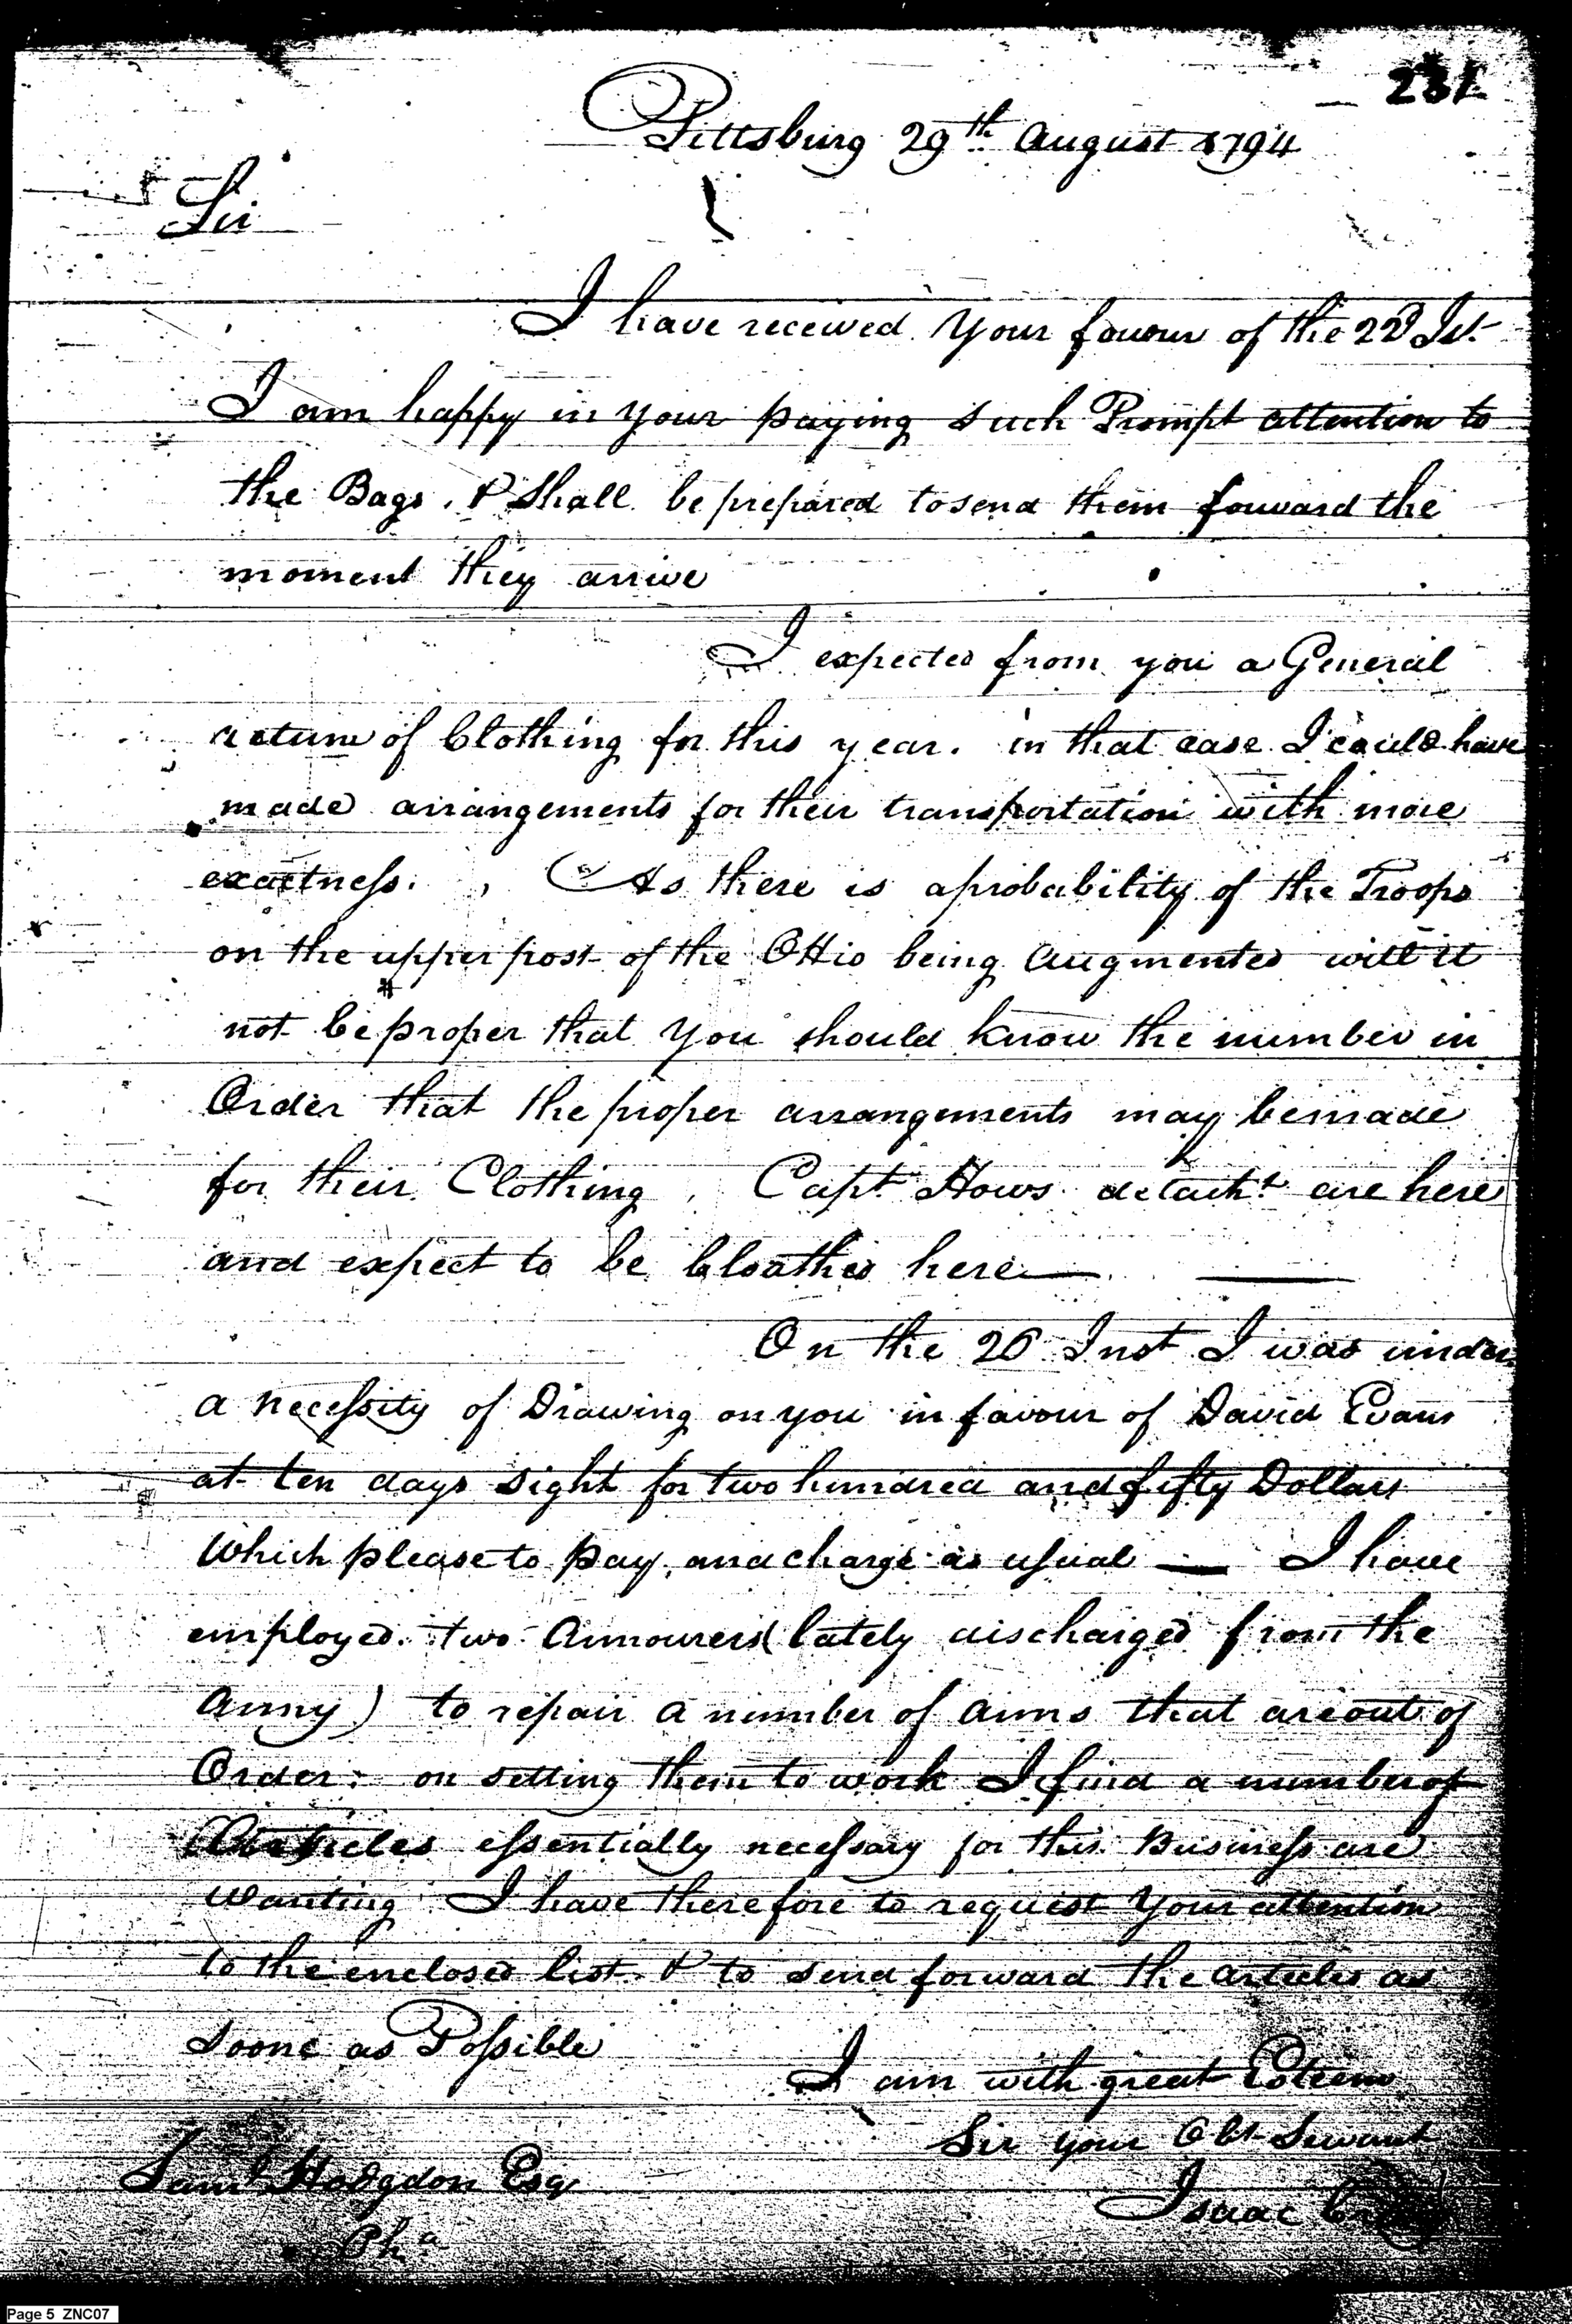 231
Pittsburg 29th August 1794
Sir
I have received your favour of the 22d Ist.
I am happy in your paying such Prompt attention to
the Bags, & Shall be prepared to send them forward the
moment they arrive
I expected from you a General
return of Clothing for this year. in that case I could have
made arrangements for their transportation with more
exactness. As there is a probability of the Troops
on the upper post of the Ohio being augmented will it
not be proper that you should know the number in
Order that the proper arrangements may be made
for their Clothing. Capt. Hows detacht are here
and expect to be Cloathed here —
On the 26 Inst I was under
a necessity of Drawing on you in favour of David Evans
at ten days sight for two hundred and fifty Dollars
which please to pay, and charge as usual — I have
employed two Armourers (lately discharged from the
Army) to repair a number of arms that are out of
Order: on setting them to work I find a number of
Articles essentially necessary for this Business are
wanting I have therefore to request your attention
to the enclosed list & to send forward the articles as
soone as Possible
I am with great Esteem
Sir your Obt Servant
Saml Hodgdon Esq
Isaac
Pha
Page 5 ZNC07